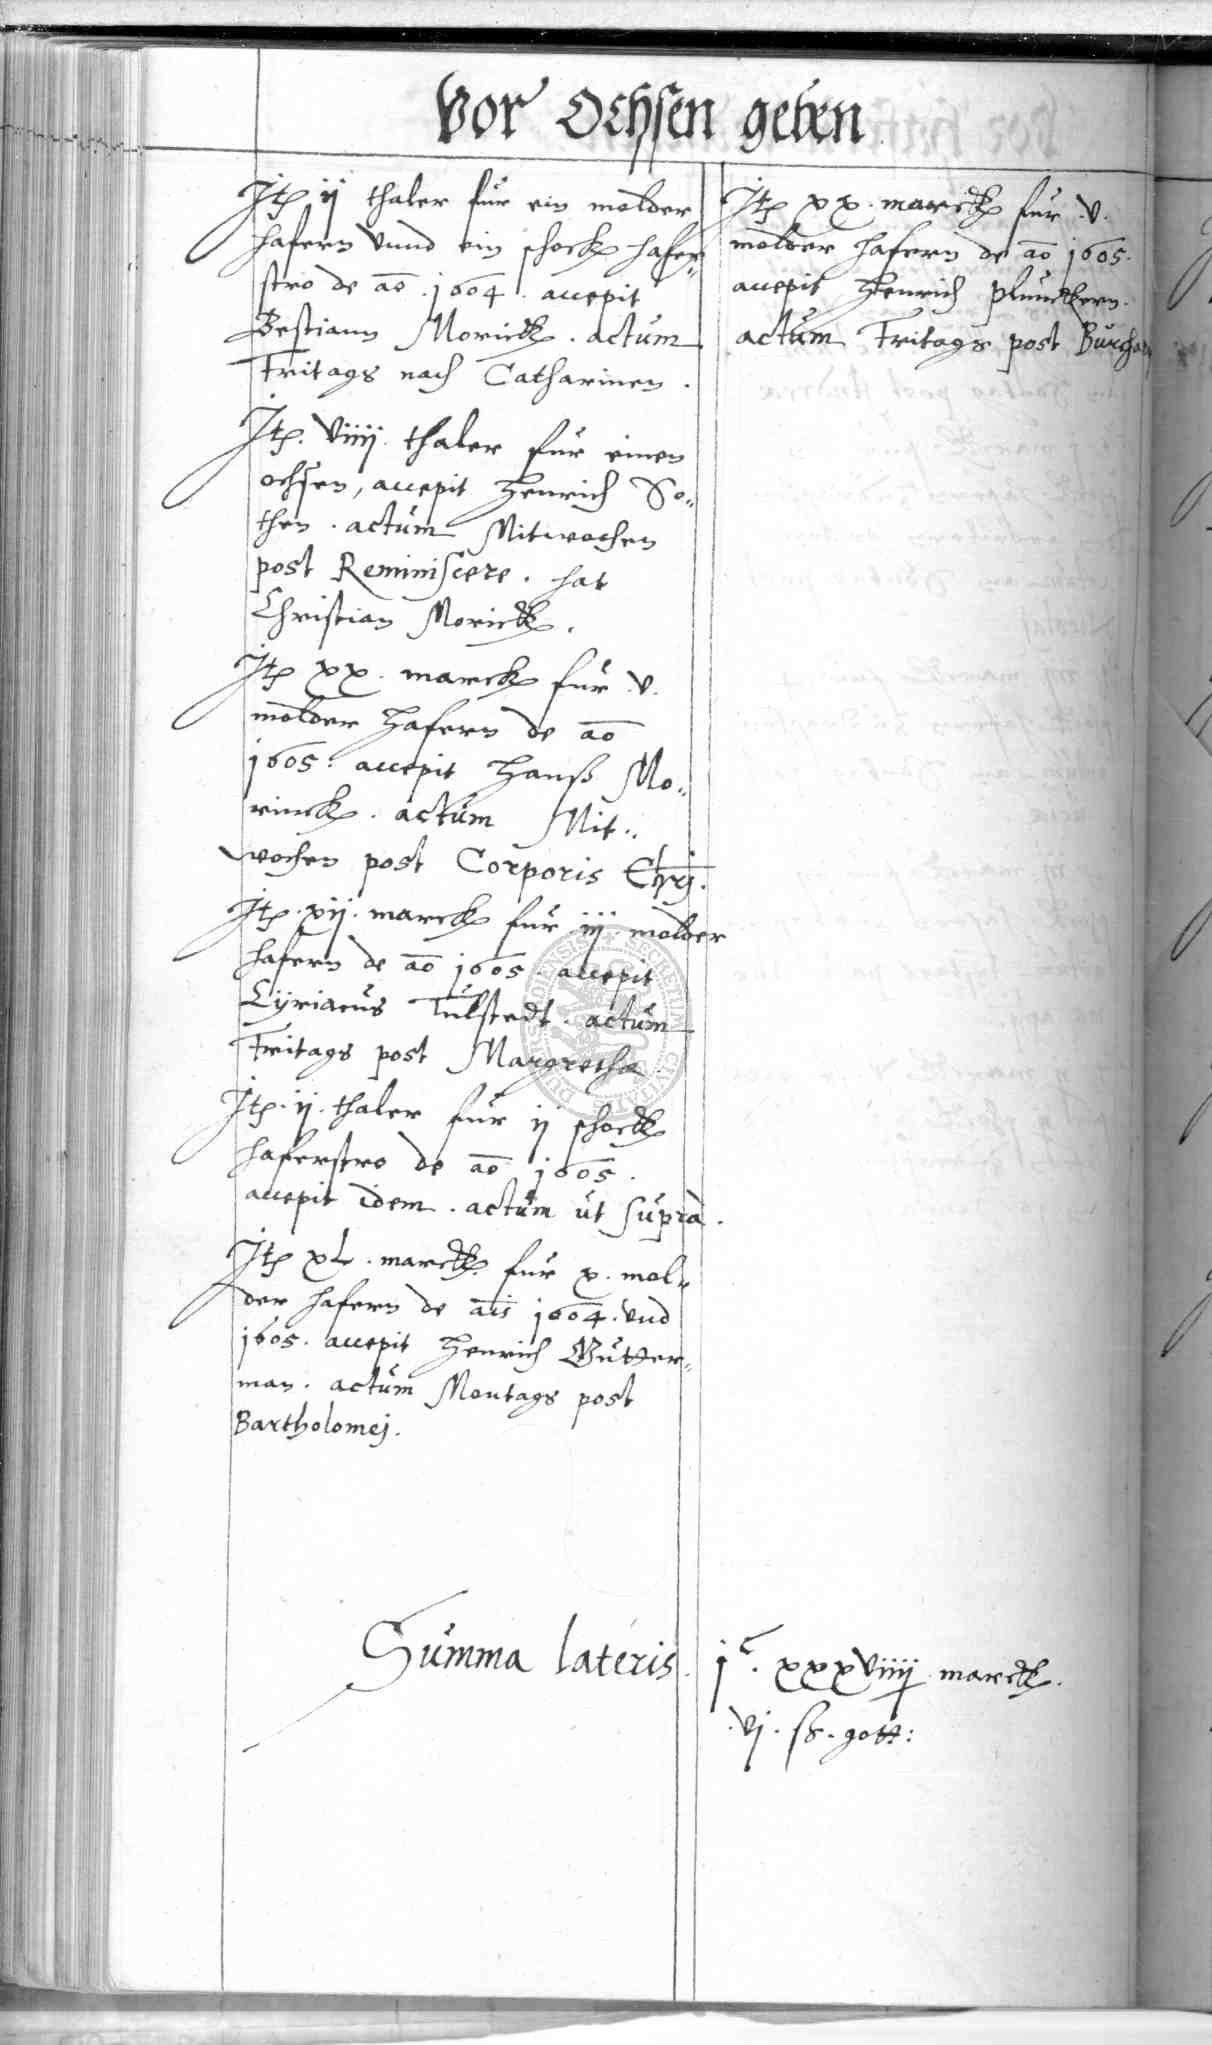 Vor Ochsen geben
Jtp ij thaler für ein molder
hafern vnnd ein schock hafer„
stro de ao . 1604 . accepit
Bestiann Morinck . actum
Fritags nach Catharinen .
Jtp . viiij . thaler für einen
ochsen, accepit Henrich So„
then . actum Mitwochen
post Reminiscere . hat
Christian Morinck .
Jtp xx . marck für .v.
molder hafern de ao
1605 . accepit Hanß Mo„
rinck . actum Mit„
wochen post Corporis Chrj .
Jtp . xij . marck für iij . molder
hafern de ao 1605 . accepit
Cyriacus Tülstedt . actum
Fritags post Margretha .
Jtp . ij . thaler für ij schock
haferstro de ao 1605 .
accepit idem . actum ut supra .
Jtp xL . marck für x . mol„
der hafern de ais 1604 . vnd
1605 . accepit Henrich Gutter„
man . actum Montags post
Bartholomej .
Jtp xx . marck für .v.
molder hafern de ao 1605 .
accepit Henrich Plunckern .
actum Fritags post Burchar
Summa lateris .
j c . xxxviiij marck .
.vj . ß . gott :
SECRETUM CIVITATIS